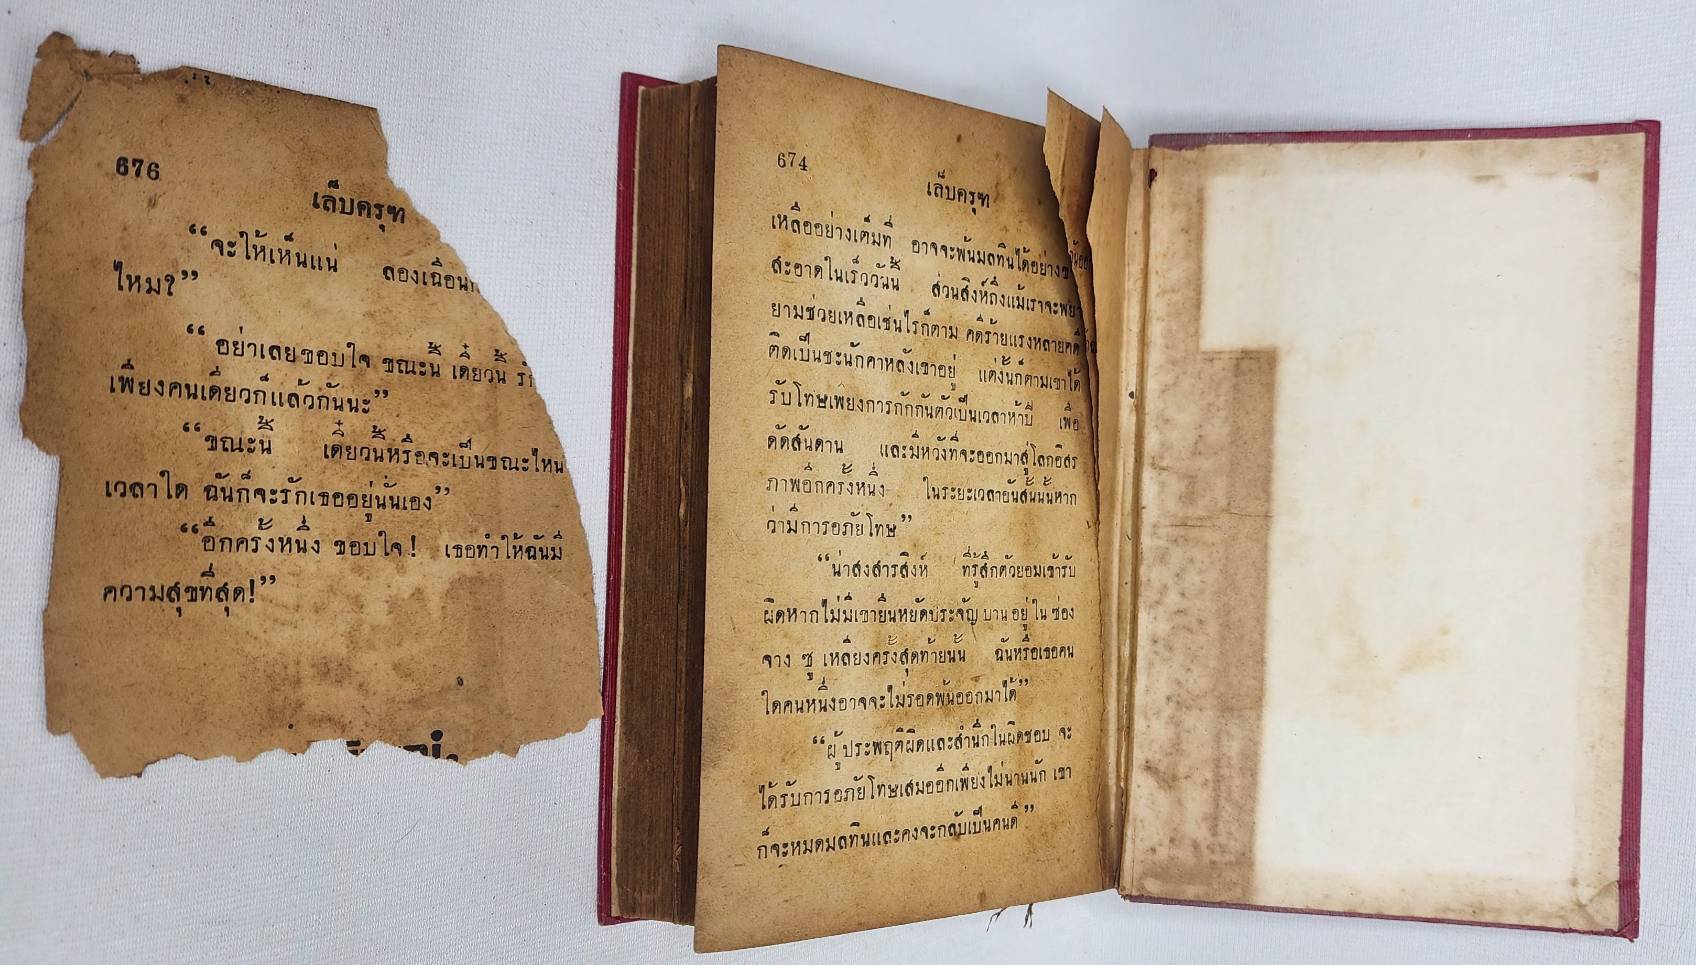 676
เล็บครุฑ
“จะให้เห็นแน่ ลองเฉือน
ไหม?”
“อย่าเลยขอบใจ ขณะนี้ เดี๋ยวนี้
เพียงคนเดียวก็แล้วกันนะ”
“ขณะนี้ เดี๋ยวนี้หรือจะเป็นขณะไหน
เวลาใด ฉันก็จะรักเธออยู่นั่นเอง”
“อีกครั้งหนึ่ง ขอบใจ! เธอทำให้ฉันมี
ความสุขที่สุด!”
674
เล็บครุฑ
เหลืออย่างเต็มที่ อาจจะพ้นมลทินได้อย่าง
สะอาดในเร็ววันนี้ ส่วนสิงห์ถึงแม้เราจะพยา
ยามช่วยเหลือเช่นไรก็ตาม คดีร้ายแรงหลายคดี
ติดเป็นชะนักคาหลังเขาอยู่ แต่งั้นก็ตามเขาได้
รับโทษเพียงการกักกันตัวเป็นเวลาห้าปี เพื่อ
ดัดสันดาน และมีหวังที่จะออกมาสู่โลกอิสร
ภาพอีกครั้งหนึ่ง ในระยะเวลาอันสั้นนั้นหาก
ว่ามีการอภัยโทษ”
“น่าสงสารสิงห์ ที่รู้สึกตัวยอมเข้ารับ
ผิดหากไม่มีเขายืนหยัดประจัญบานอยู่ในช่อง
จาง ซู เหลียงครั้งสุดท้ายนั้น ฉันหรือเธอคน
ใดคนหนึ่งอาจจะไม่รอดพ้นออกมาได้”
“ผู้ประพฤติผิดและสำนึกในผิดชอบ จะ
ได้รับการอภัยโทษเสมออีกเพียงไม่นานนัก เขา
ก็จะหมดมลทินและคงจะกลับเป็นคนดี”